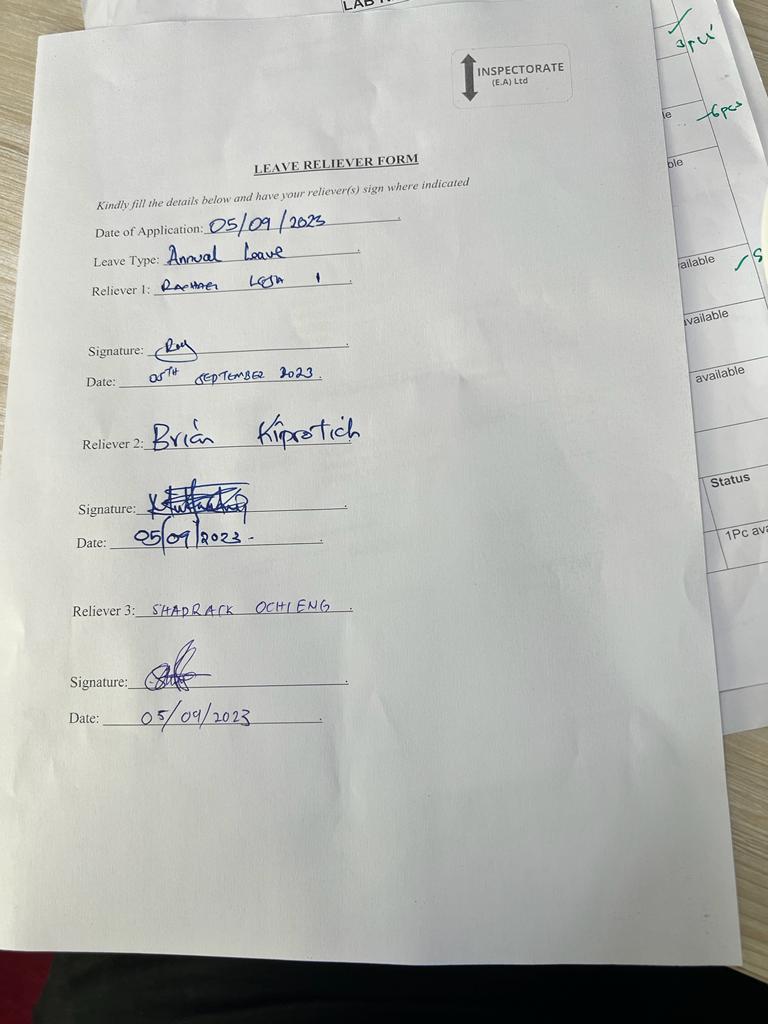 LAB
INSPECTORATE
(E.A) Ltd
LEAVE RELIEVER FORM
Kindly fill the details below and have your reliever(s) sign where indicated
Date of Application: 05/09/2023
Leave Type: Annual Leave
Reliever 1: RACHAEL
Signature:
Date: 05TH SEPTEMBER 2023.
Reliever 2: Brian Kiprotich
Signature:
Date: 05/09/2023-
Reliever 3: SHADRACK OCHIENG
Signature:
Date: 05/09/2023
6pcs
ble
ailable
available
available
Status
1Pc ava